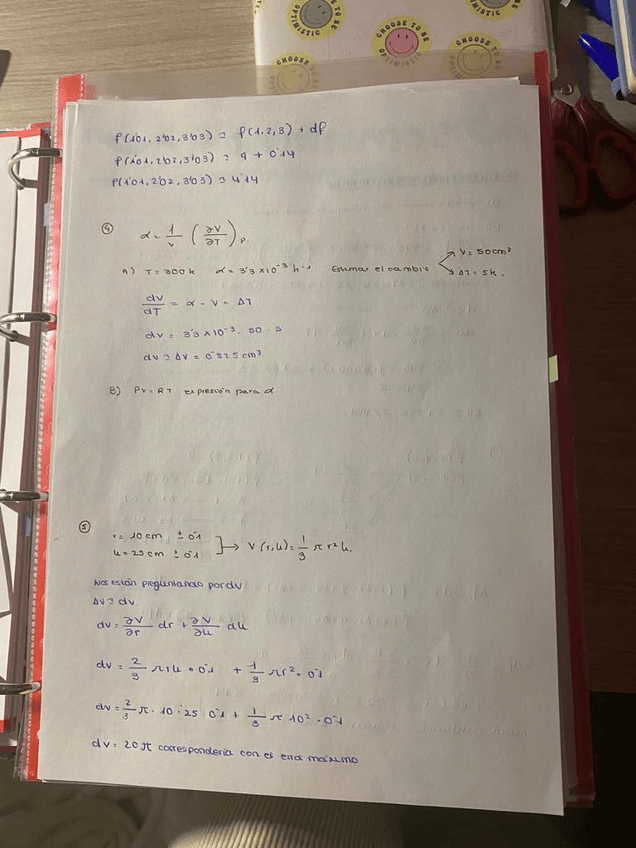 CHOOSE TO BE OPTIMISTIC
f(1'01, 2'02, 3'03) ≃ f(1,2,3) + df
f(1'01, 2'02, 3'03) ≃ 4 + 0'14
f(1'01, 2'02, 3'03) ≃ 4'14
④ α = 1/V (∂V/∂T)P.
A) T = 300k α = 3'3 x10⁻³ k⁻¹ Estimar el cambio V = 50cm³
ΔT = 5k.
dV/dT = α · V · ΔT
dv = 3'3 x10⁻³ · 50 · 5
dv ≃ ΔV = 0'825 cm³
B) PV = RT expresión para α
⑤
r = 10 cm ± 0'1
h = 25 cm ± 0'1 → V(r,h) = 1/3 π r² h.
Nos están preguntando por dv
ΔV ≃ dv
dv = ∂V/∂r dr + ∂V/∂h dh
dv = 2/3 π r h · 0'1 + 1/3 π r² · 0'1
dv = 2/3 π · 10 · 25 0'1 + 1/3 π 10² · 0'1
dv = 20π correspondería con el error máximo